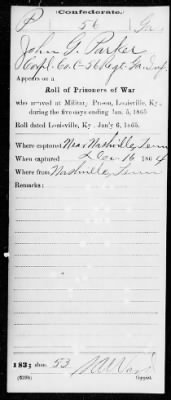 (Confederate.)
P 56 Ga.
John G. Parker
Corpl. Co. C-56 Regt. Ga. Inf.
Appears on a
Roll of Prisoners of War
who arrived at Military Prison, Louisville, Ky.,
during the five days ending Jan. 5, 1865
Roll dated Louisville, Ky., Jan'y 6, 1865.
Where captured Near Nashville, Tenn
When captured Dec. 16 1864
Where from Nashville, Tenn
Remarks:
sheet 53
Copyist.